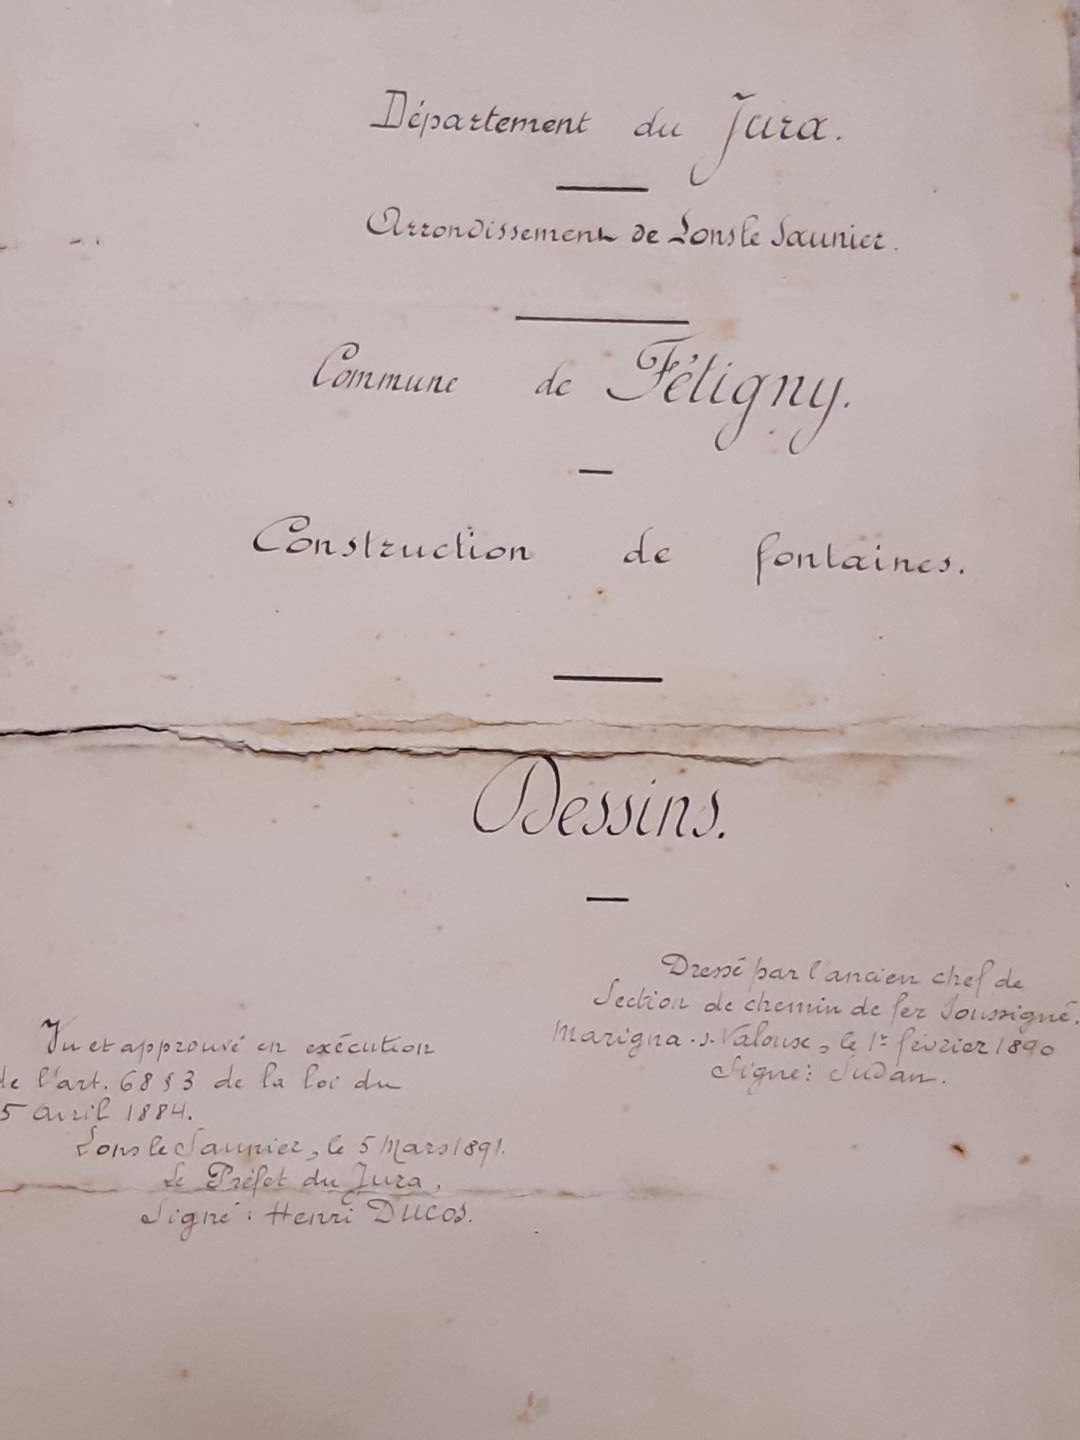 Département du Jura.
Arrondissement de Lons le Saunier.
Commune de Fétigny.
Construction de fontaines.
Dessins.
Dressé par l'ancien chef de
Section de chemin de fer Soussigné.
Marigna.s.Valouse, le 1er février 1890
Signé: Sudan.
Vu et approuvé en exécution
de l'art. 68 § 3 de la loi du
5 avril 1884.
Lons le Saunier, le 5 Mars 1891.
Le Préfet du Jura,
Signé: Henri Ducos.